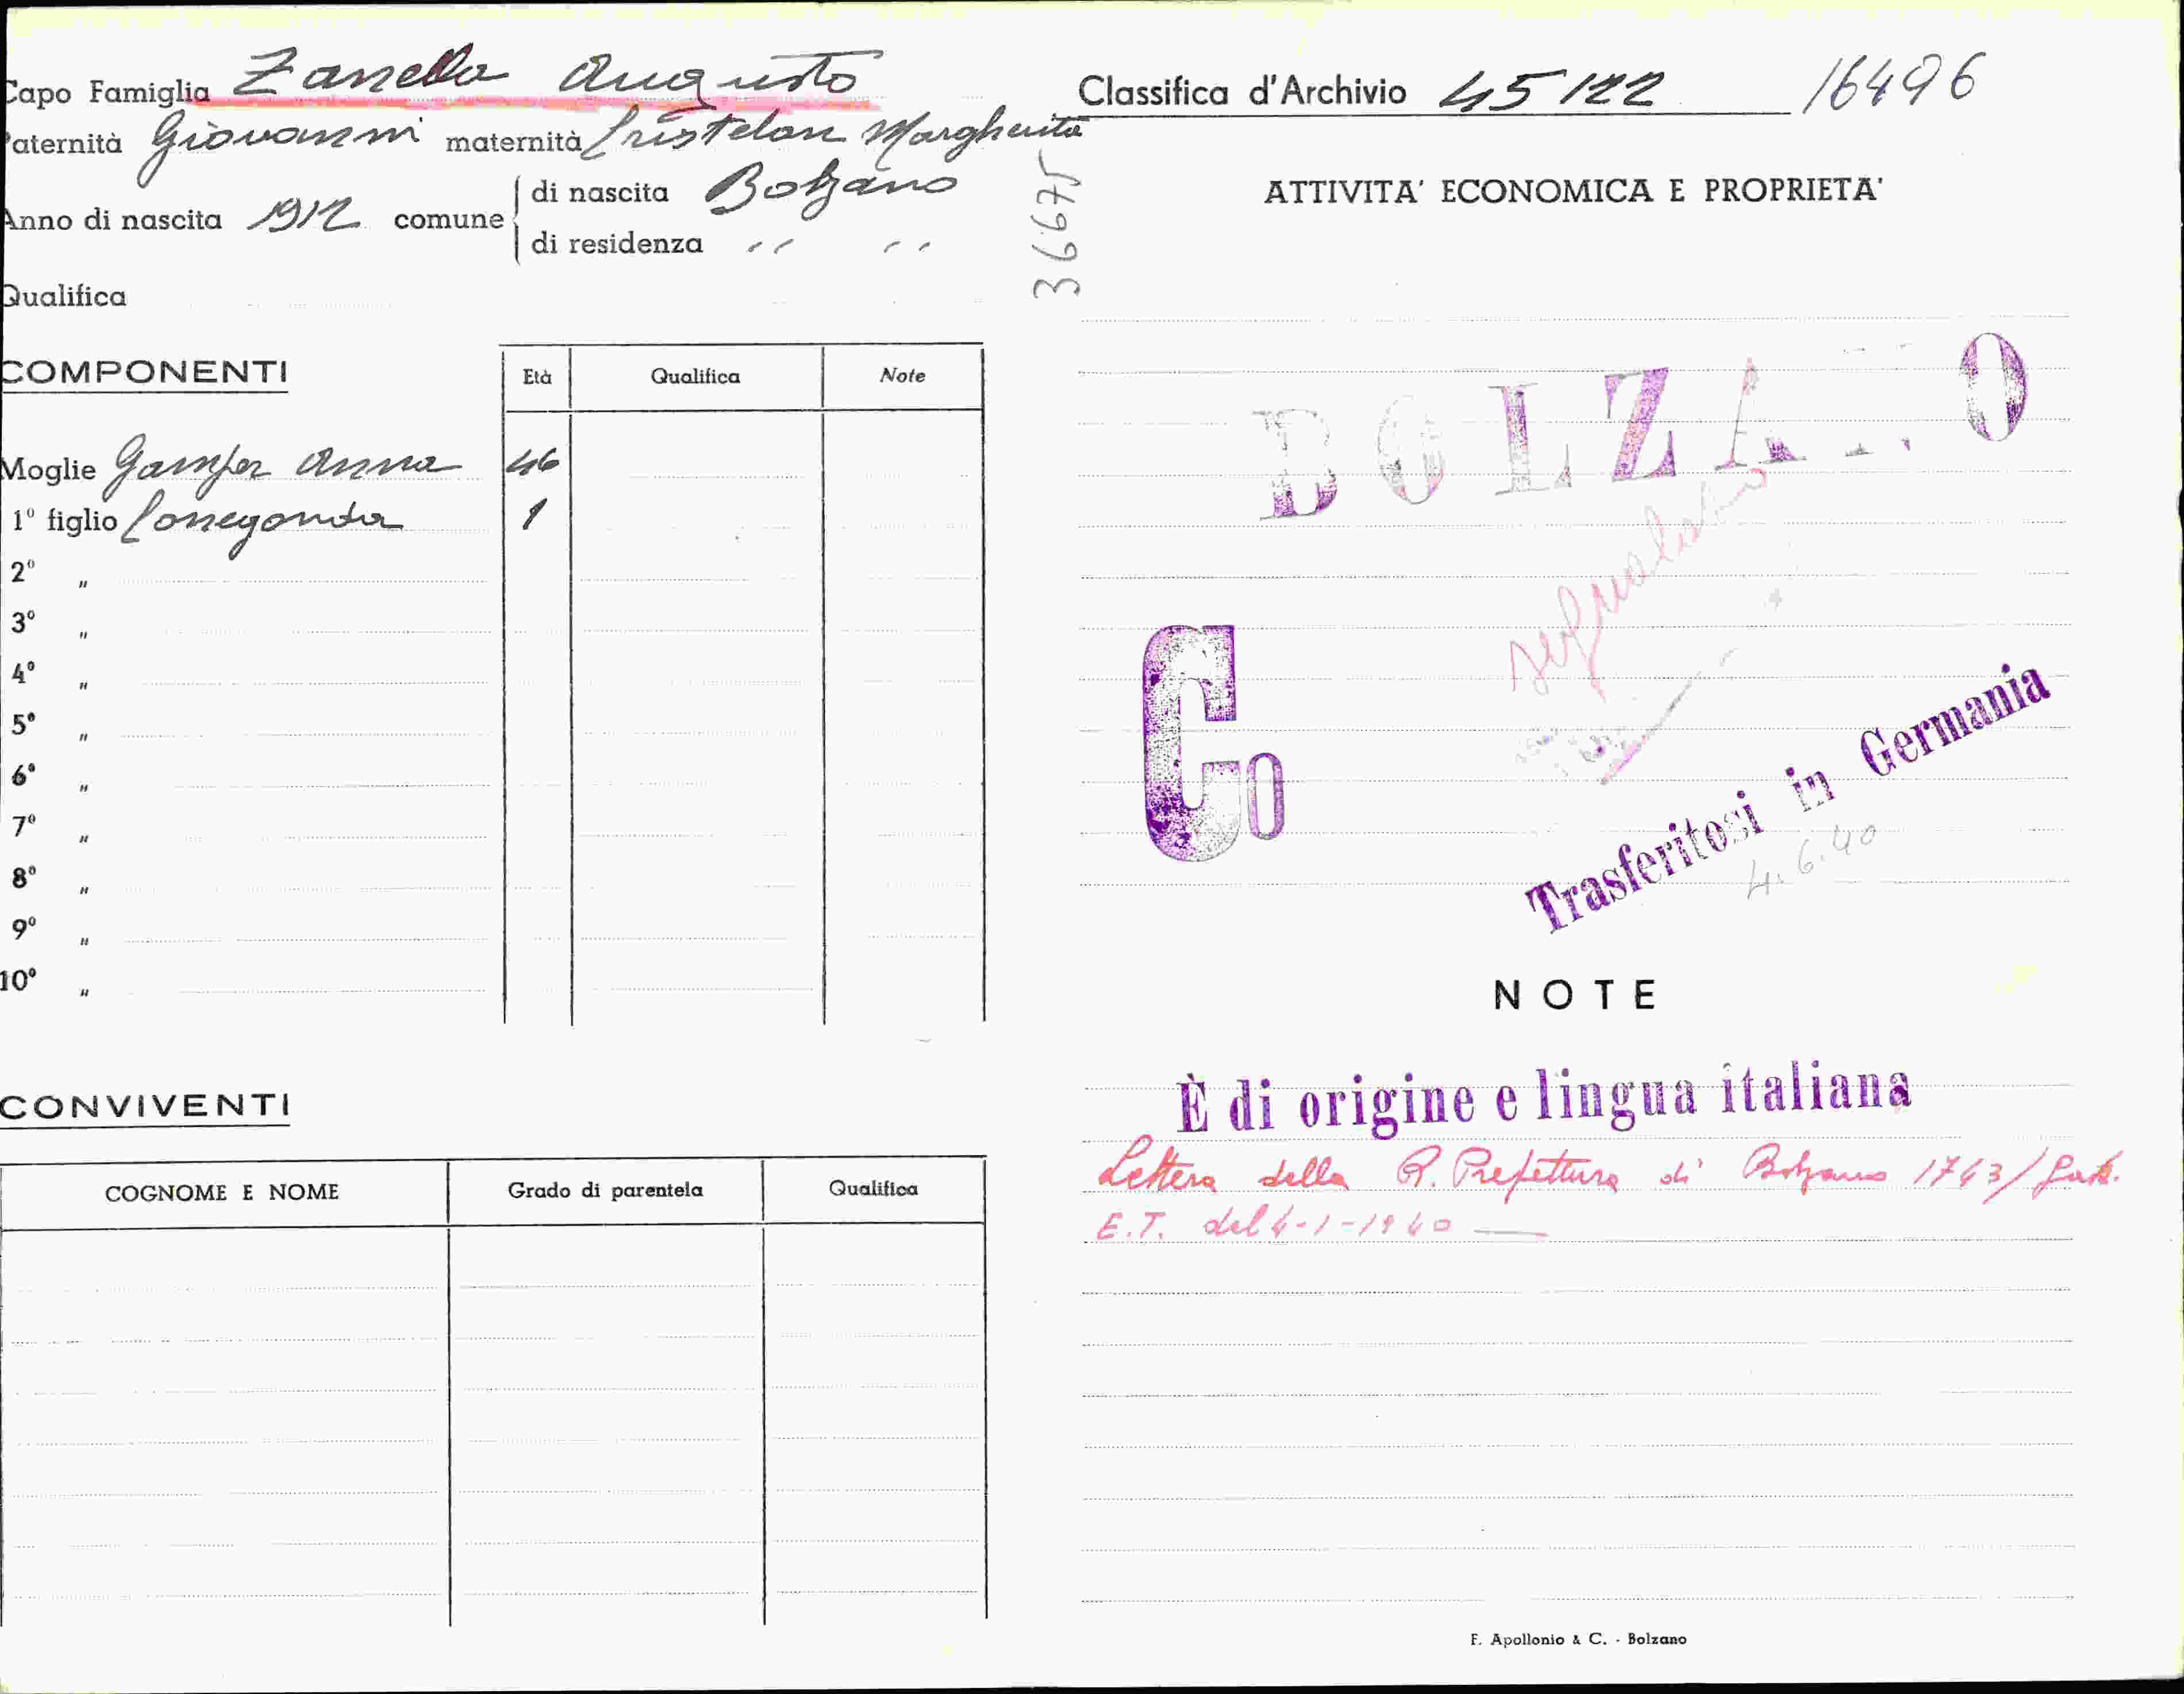 Capo Famiglia Zanella Augusto
Paternità Giovanni maternità Cristelon Margherita
Anno di nascita 1912 comune di nascita Bolzano
di residenza " "
Qualifica
COMPONENTI
Età Qualifica Note
Moglie Gamper Anna 46
1º figlio Conegonda 1
2º "
3º "
4º "
5º "
6º "
7º "
8º "
9º "
10º "
CONVIVENTI
COGNOME E NOME Grado di parentela Qualifica
36675
Classifica d'Archivio 45122 16496
ATTIVITA' ECONOMICA E PROPRIETA'
BOLZA..O
Co
Trasferitosi in Germania
4.6.40
NOTE
È di origine e lingua italiana
Lettera della R. Prefettura di Bolzano 1743/Gab.
E.T. del 4-1-1940
F. Apollonio & C. - Bolzano